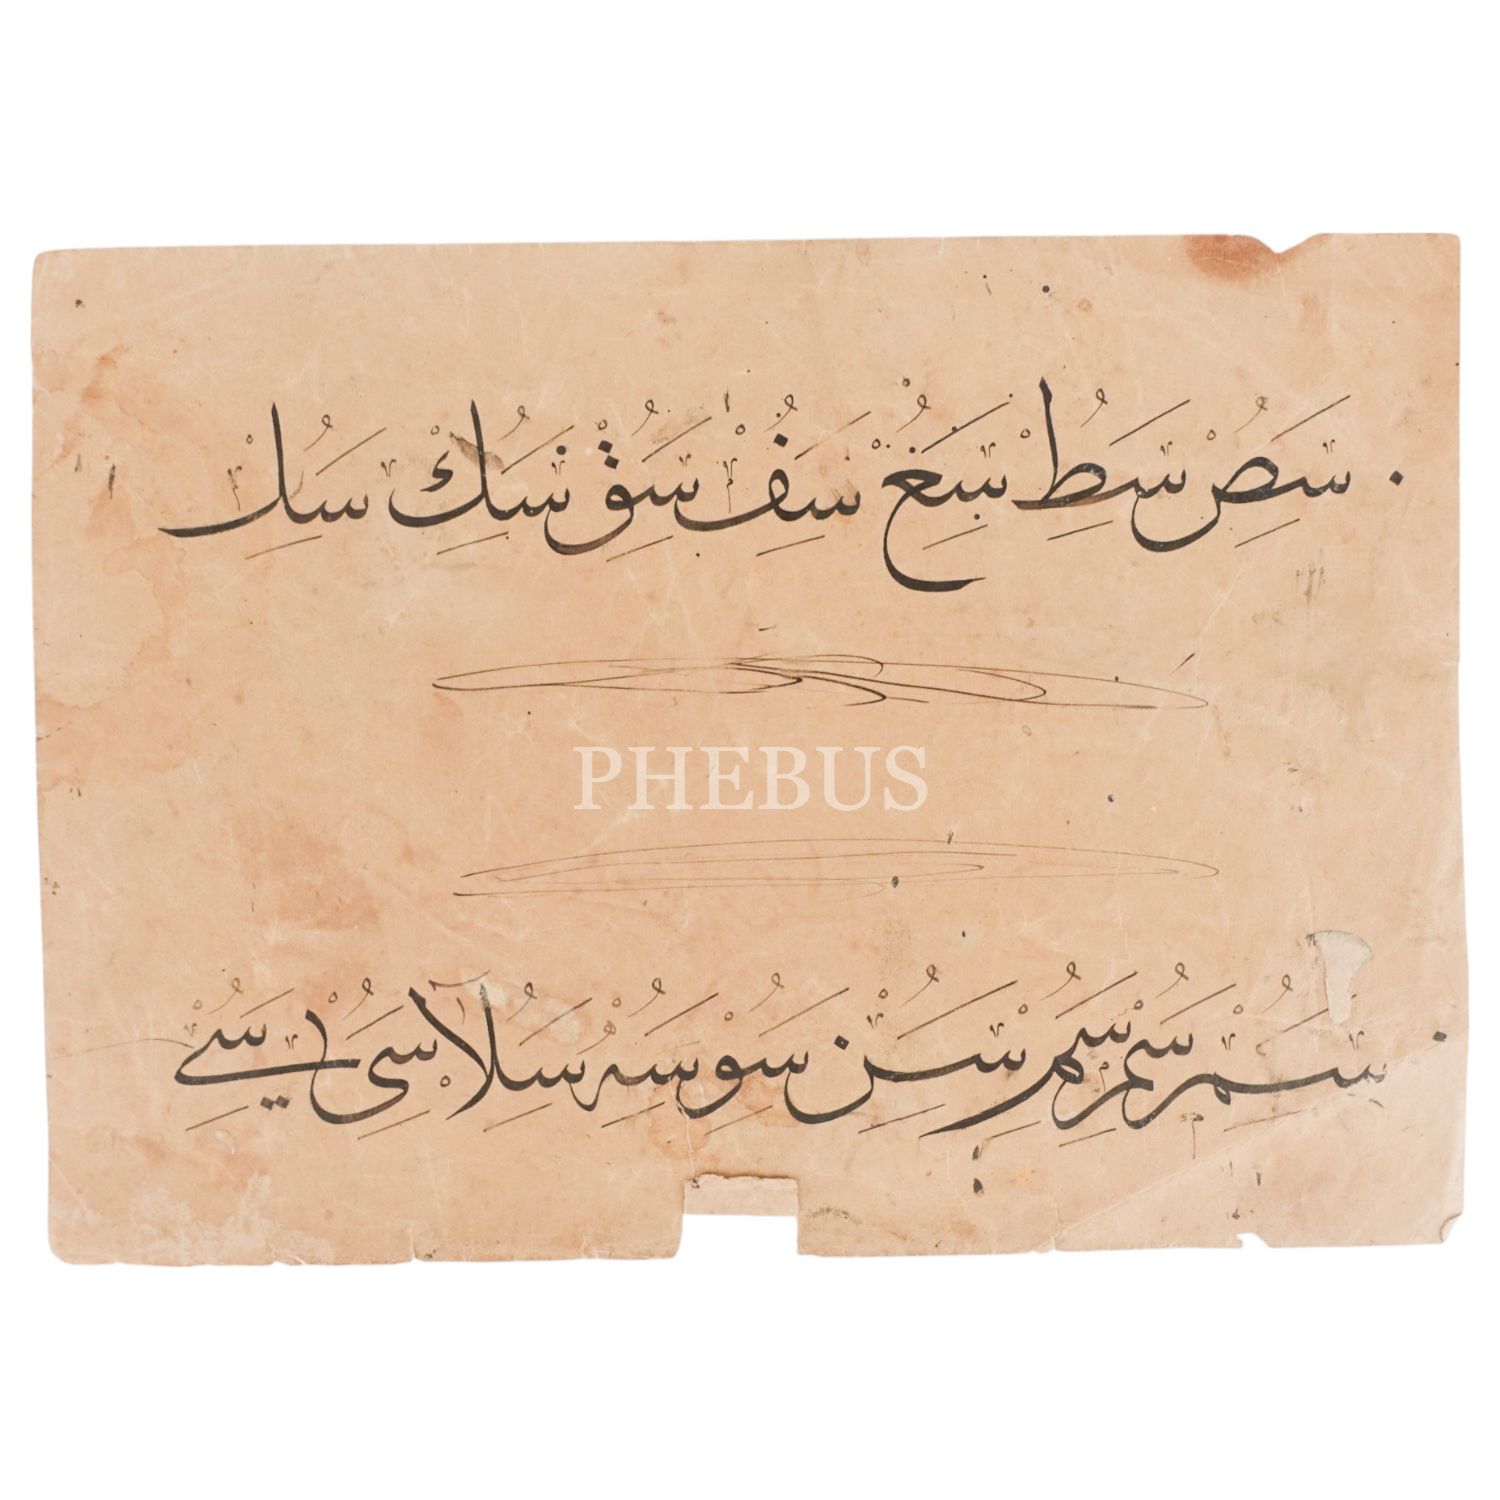 سَصِْ سَطِْ سَبَغِْ سَفِْ سَقِْ سَكِْ سَلِْ
PHEBUS
سَمِْ سَمِْ سَمِْ سَنِْ سَوْ سَهِْ سَلَا سَىْ سَےْ